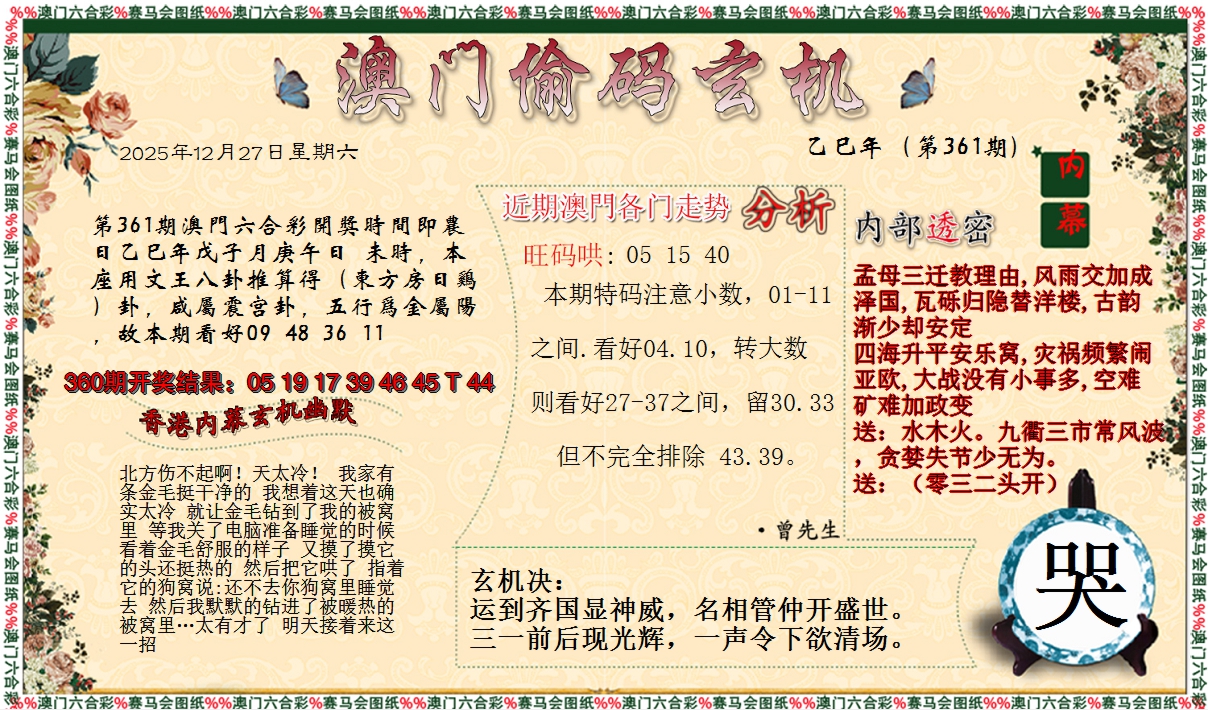 %%澳门六合彩%赛马会图纸%%澳门六合彩%赛马会图纸%%澳门六合彩%赛马会图纸%%澳门六合彩%赛马会图纸%%澳门六合彩%赛马会图纸%%澳门六合彩%赛马会图纸%%
澳门偷码玄机
2025年12月27日星期六
乙巳年（第361期）
内幕
第361期澳門六合彩開獎時間即農
日乙巳年戊子月庚午日 未時，本
座用文王八卦推算得（東方房日鷄
）卦，咸屬震宫卦，五行爲金屬陽
，故本期看好09 48 36 11
360期开奖结果：05 19 17 39 46 45 T 44
香港内幕玄机幽默
北方伤不起啊！天太冷！ 我家有
条金毛挺干净的 我想着这天也确
实太冷 就让金毛钻到了我的被窝
里 等我关了电脑准备睡觉的时候
看着金毛舒服的样子 又摸了摸它
的头还挺热的 然后把它哄了 指着
它的狗窝说:还不去你狗窝里睡觉
去 然后我默默的钻进了被暖热的
被窝里…太有才了 明天接着来这
一招
近期澳門各门走势 分析
旺码哄: 05 15 40
本期特码注意小数，01-11
之间.看好04.10，转大数
则看好27-37之间，留30.33
但不完全排除 43.39。
·曾先生
内部透密
孟母三迁教理由,风雨交加成
泽国,瓦砾归隐替洋楼,古韵
渐少却安定
四海升平安乐窝,灾祸频繁闹
亚欧,大战没有小事多,空难
矿难加政变
送：水木火。九衢三市常风波
，贪婪失节少无为。
送：（零三二头开）
玄机决：
运到齐国显神威，名相管仲开盛世。
三一前后现光辉，一声令下欲清场。
哭
%%澳门六合彩%赛马会图纸%%澳门六合彩%赛马会图纸%%澳门六合彩%赛马会图纸%%澳门六合彩%赛马会图纸%%澳门六合彩%赛马会图纸%%澳门六合彩%赛马会图纸%%